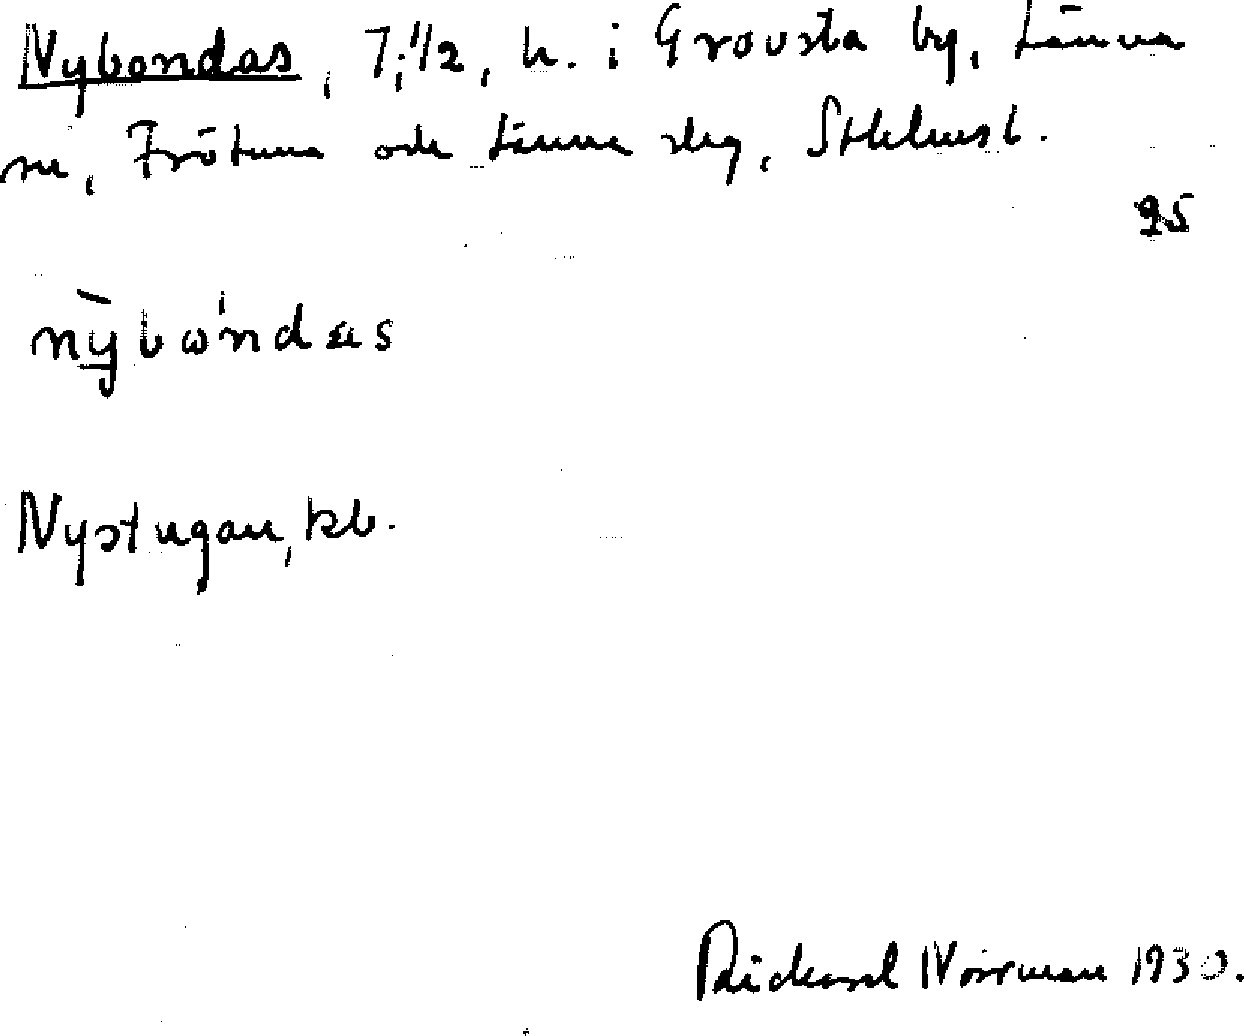 Nybondas, 7; 1/2, h. i Grovsta by, Länna
sn, Frötuna och Länna slg, Sthlmsl.
95
nỳbóndas
Nystugan, kb.
Rickard Norrman 1930.